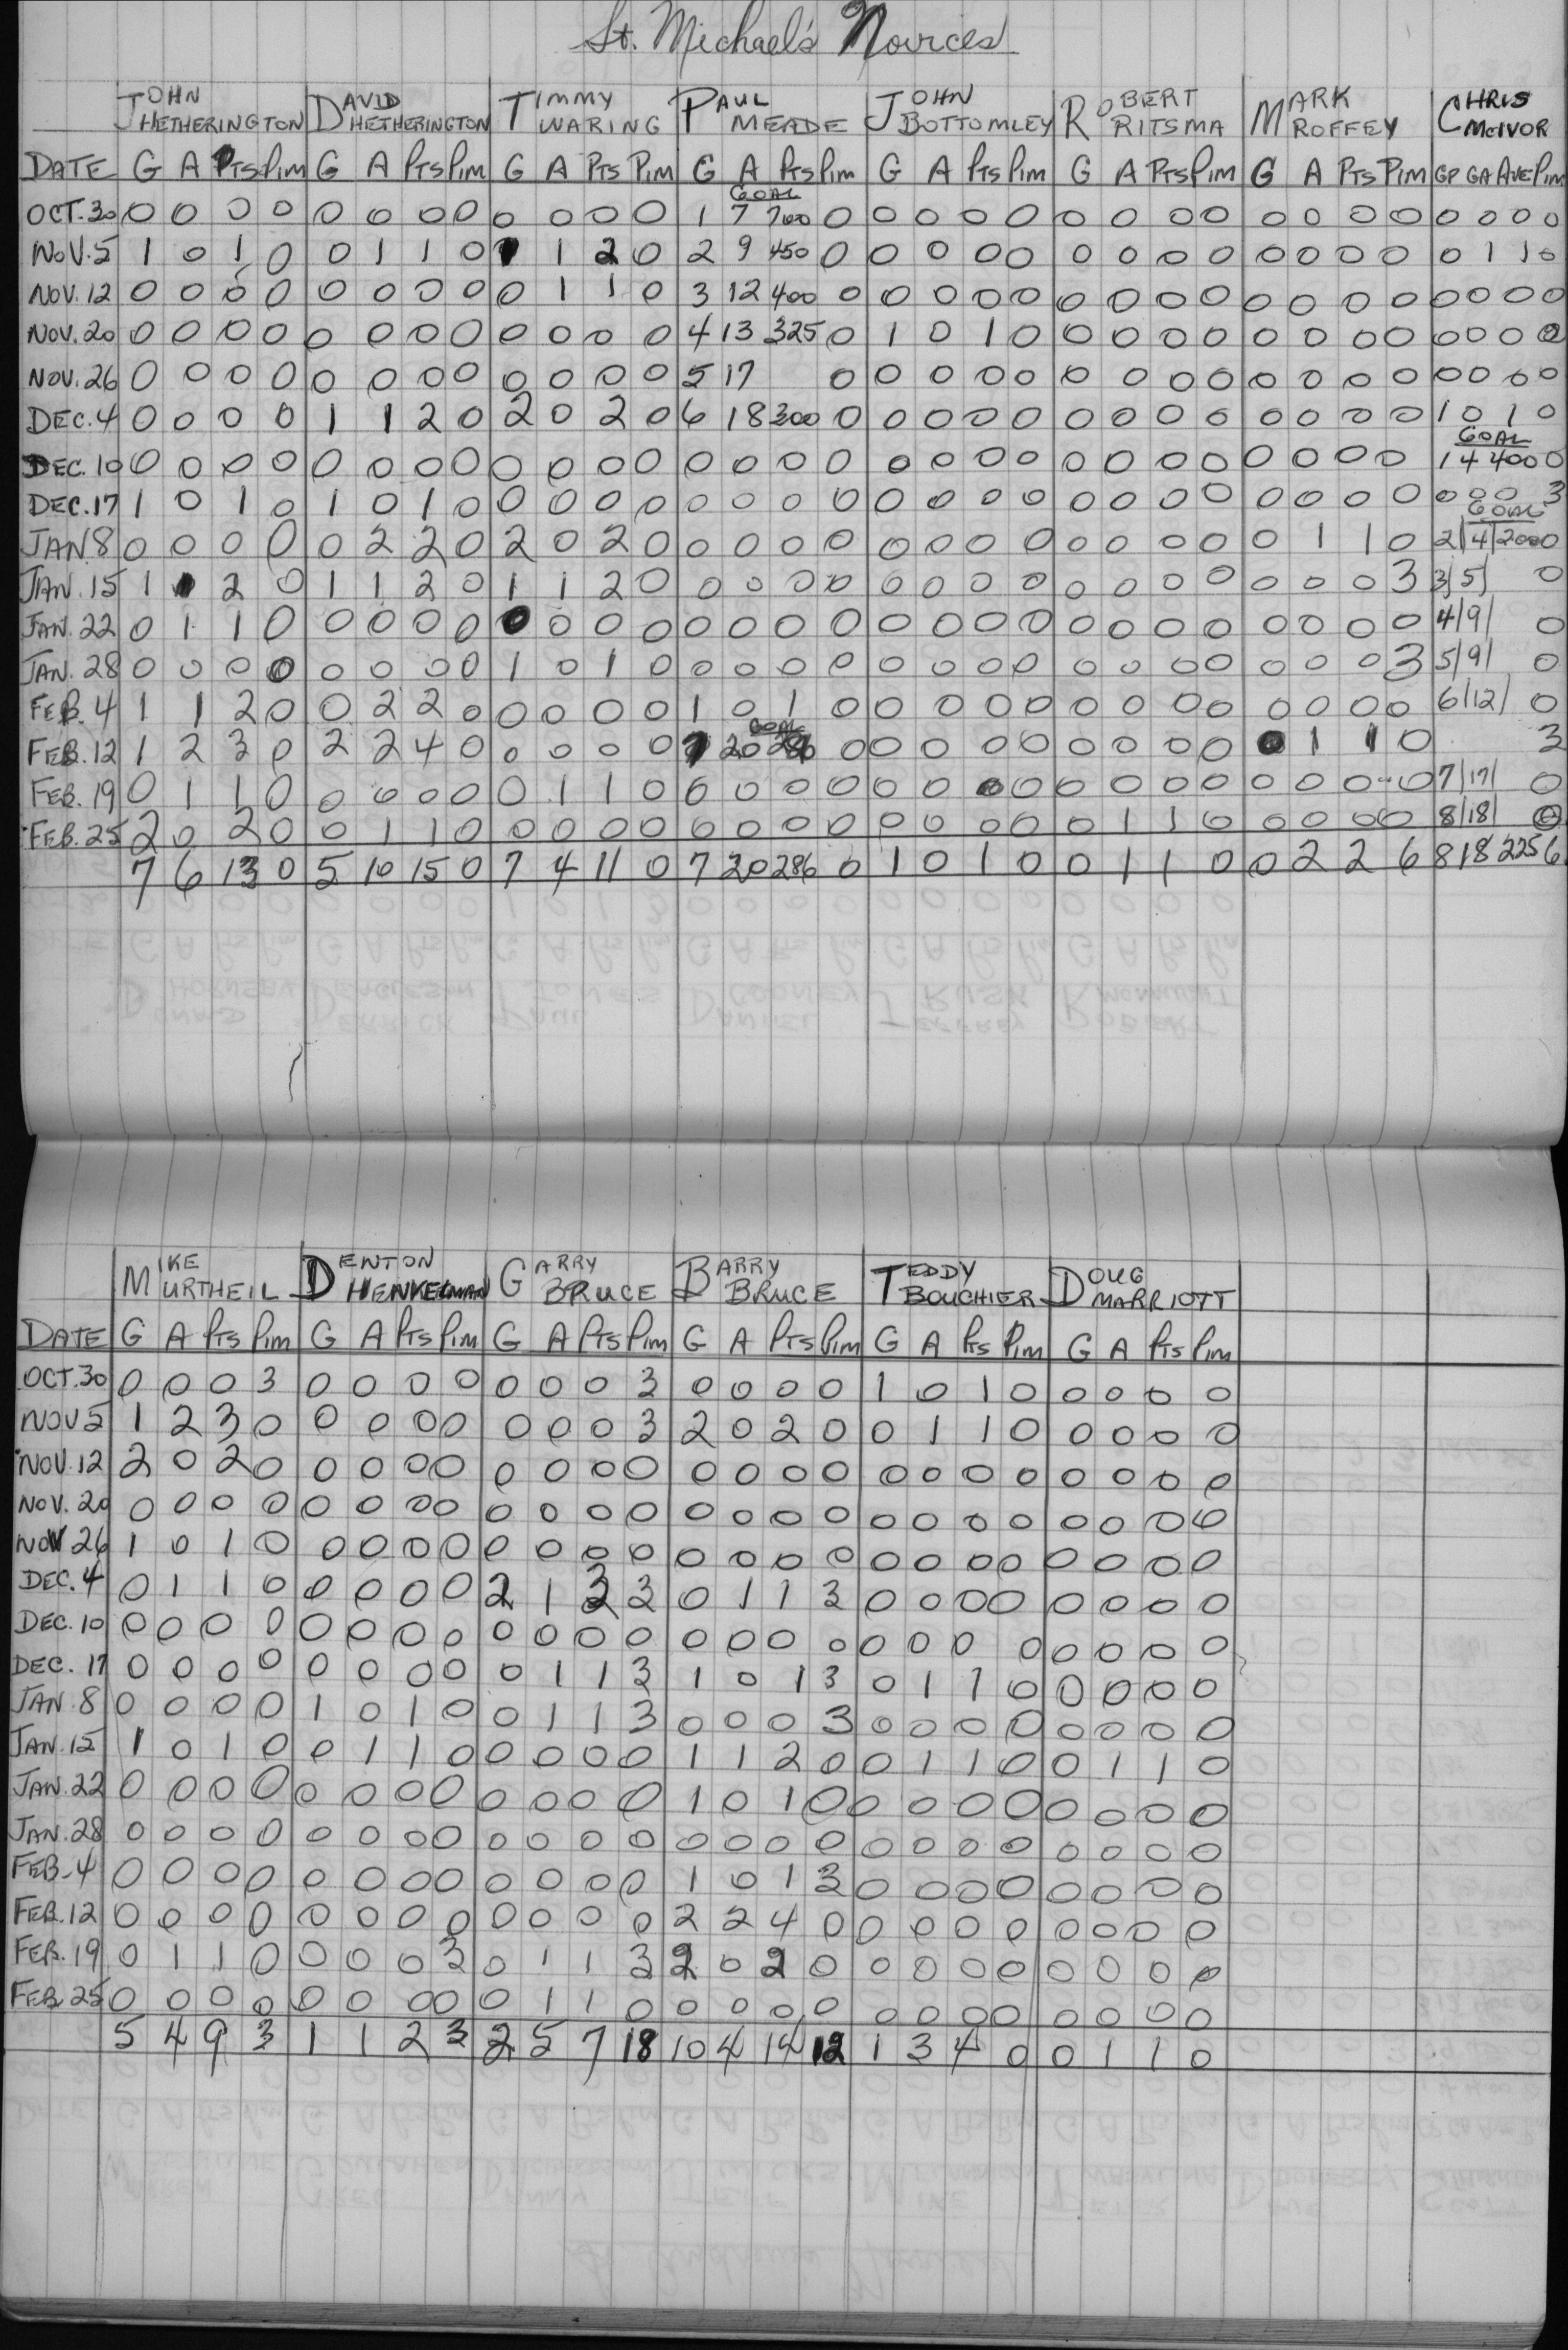 St. Michael's Novices
JOHN HETHERINGTON DAVID HETHERINGTON TIMMY WARING PAUL MEADE JOHN BOTTOMLEY ROBERT RITSMA MARK ROFFEY CHRIS McIVOR
DATE G A PTS Pim G A PTS Pim G A PTS Pim G A PTS Pim G A PTS Pim G A PTS Pim G A PTS Pim GP GA AVE Pim
GOAL
OCT. 30 0 0 0 0 0 0 0 0 0 0 0 0 1 7 700 0 0 0 0 0 0 0 0 0 0 0 0 0 0 0 0 0
NOV. 5 1 0 1 0 0 1 1 0 1 1 2 0 2 9 450 0 0 0 0 0 0 0 0 0 0 0 0 0 0 1 1 0
NOV. 12 0 0 0 0 0 0 0 0 0 1 1 0 3 12 400 0 0 0 0 0 0 0 0 0 0 0 0 0 0 0 0 0
NOV. 20 0 0 0 0 0 0 0 0 0 0 0 0 4 13 325 0 1 0 1 0 0 0 0 0 0 0 0 0 0 0 0 0
NOV. 26 0 0 0 0 0 0 0 0 0 0 0 0 5 17 0 0 0 0 0 0 0 0 0 0 0 0 0 0 0 0 0
DEC. 4 0 0 0 0 1 1 2 0 2 0 2 0 6 18 300 0 0 0 0 0 0 0 0 0 0 0 0 0 1 0 1 0
GOAL
DEC. 10 0 0 0 0 0 0 0 0 0 0 0 0 0 0 0 0 0 0 0 0 0 0 0 0 0 0 0 0 1 4 400 0
DEC. 17 1 0 1 0 1 0 1 0 0 0 0 0 0 0 0 0 0 0 0 0 0 0 0 0 0 0 0 0 0 0 0 3
GOAL
JAN 8 0 0 0 0 0 2 2 0 2 0 2 0 0 0 0 0 0 0 0 0 0 0 0 0 0 1 1 0 2/4/200 0
JAN. 15 1 1 2 0 1 1 2 0 1 1 2 0 0 0 0 0 0 0 0 0 0 0 0 0 0 0 0 3 3/5/ 0
JAN. 22 0 1 1 0 0 0 0 0 0 0 0 0 0 0 0 0 0 0 0 0 0 0 0 0 0 0 0 0 4/9/ 0
JAN. 28 0 0 0 0 0 0 0 0 1 0 1 0 0 0 0 0 0 0 0 0 0 0 0 0 0 0 0 3 5/9/ 0
FEB. 4 1 1 2 0 0 2 2 0 0 0 0 0 1 0 1 0 0 0 0 0 0 0 0 0 0 0 0 0 6/12/ 0
GOAL
FEB. 12 1 2 3 0 2 2 4 0 0 0 0 0 7 20 286 0 0 0 0 0 0 0 0 0 0 1 1 0 3
FEB. 19 0 1 1 0 0 0 0 0 0 1 1 0 0 0 0 0 0 0 0 0 0 0 0 0 0 0 0 0 7/17/ 0
FEB. 25 2 0 2 0 0 1 1 0 0 0 0 0 0 0 0 0 0 0 0 0 0 1 1 0 0 0 0 0 8/18/ 0
7 6 13 0 5 10 15 0 7 4 11 0 7 20 286 0 1 0 1 0 0 1 1 0 0 2 2 6 8 18 225 6
MIKE MURTHEIL DENTON HENKELMAN GARRY BRUCE BARRY BRUCE TEDDY BOUCHIER DOUG MARRIOTT
DATE G A PTS Pim G A PTS Pim G A PTS Pim G A PTS Pim G A PTS Pim G A PTS Pim
OCT. 30 0 0 0 3 0 0 0 0 0 0 0 3 0 0 0 0 1 0 1 0 0 0 0 0
NOV 5 1 2 3 0 0 0 0 0 0 0 0 3 2 0 2 0 0 1 1 0 0 0 0 0
NOV. 12 2 0 2 0 0 0 0 0 0 0 0 0 0 0 0 0 0 0 0 0 0 0 0 0
NOV. 20 0 0 0 0 0 0 0 0 0 0 0 0 0 0 0 0 0 0 0 0 0 0 0 0
NOV 26 1 0 1 0 0 0 0 0 0 0 0 0 0 0 0 0 0 0 0 0 0 0 0 0
DEC. 4 0 1 1 0 0 0 0 0 2 1 3 3 0 1 1 3 0 0 0 0 0 0 0 0
DEC. 10 0 0 0 0 0 0 0 0 0 0 0 0 0 0 0 0 0 0 0 0 0 0 0 0
DEC. 17 0 0 0 0 0 0 0 0 0 1 1 3 1 0 1 3 0 1 1 0 0 0 0 0
JAN. 8 0 0 0 0 1 0 1 0 0 1 1 3 0 0 0 3 0 0 0 0 0 0 0 0
JAN. 15 1 0 1 0 0 1 1 0 0 0 0 0 1 1 2 0 0 1 1 0 0 1 1 0
JAN. 22 0 0 0 0 0 0 0 0 0 0 0 0 1 0 1 0 0 0 0 0 0 0 0 0
JAN. 28 0 0 0 0 0 0 0 0 0 0 0 0 0 0 0 0 0 0 0 0 0 0 0 0
FEB. 4 0 0 0 0 0 0 0 0 0 0 0 0 1 0 1 3 0 0 0 0 0 0 0 0
FEB. 12 0 0 0 0 0 0 0 0 0 0 0 0 2 2 4 0 0 0 0 0 0 0 0 0
FEB. 19 0 1 1 0 0 0 0 3 0 1 1 3 2 0 2 0 0 0 0 0 0 0 0 0
FEB. 25 0 0 0 0 0 0 0 0 0 1 1 0 0 0 0 0 0 0 0 0 0 0 0 0
5 4 9 3 1 1 2 3 2 5 7 18 10 4 14 12 1 3 4 0 0 1 1 0